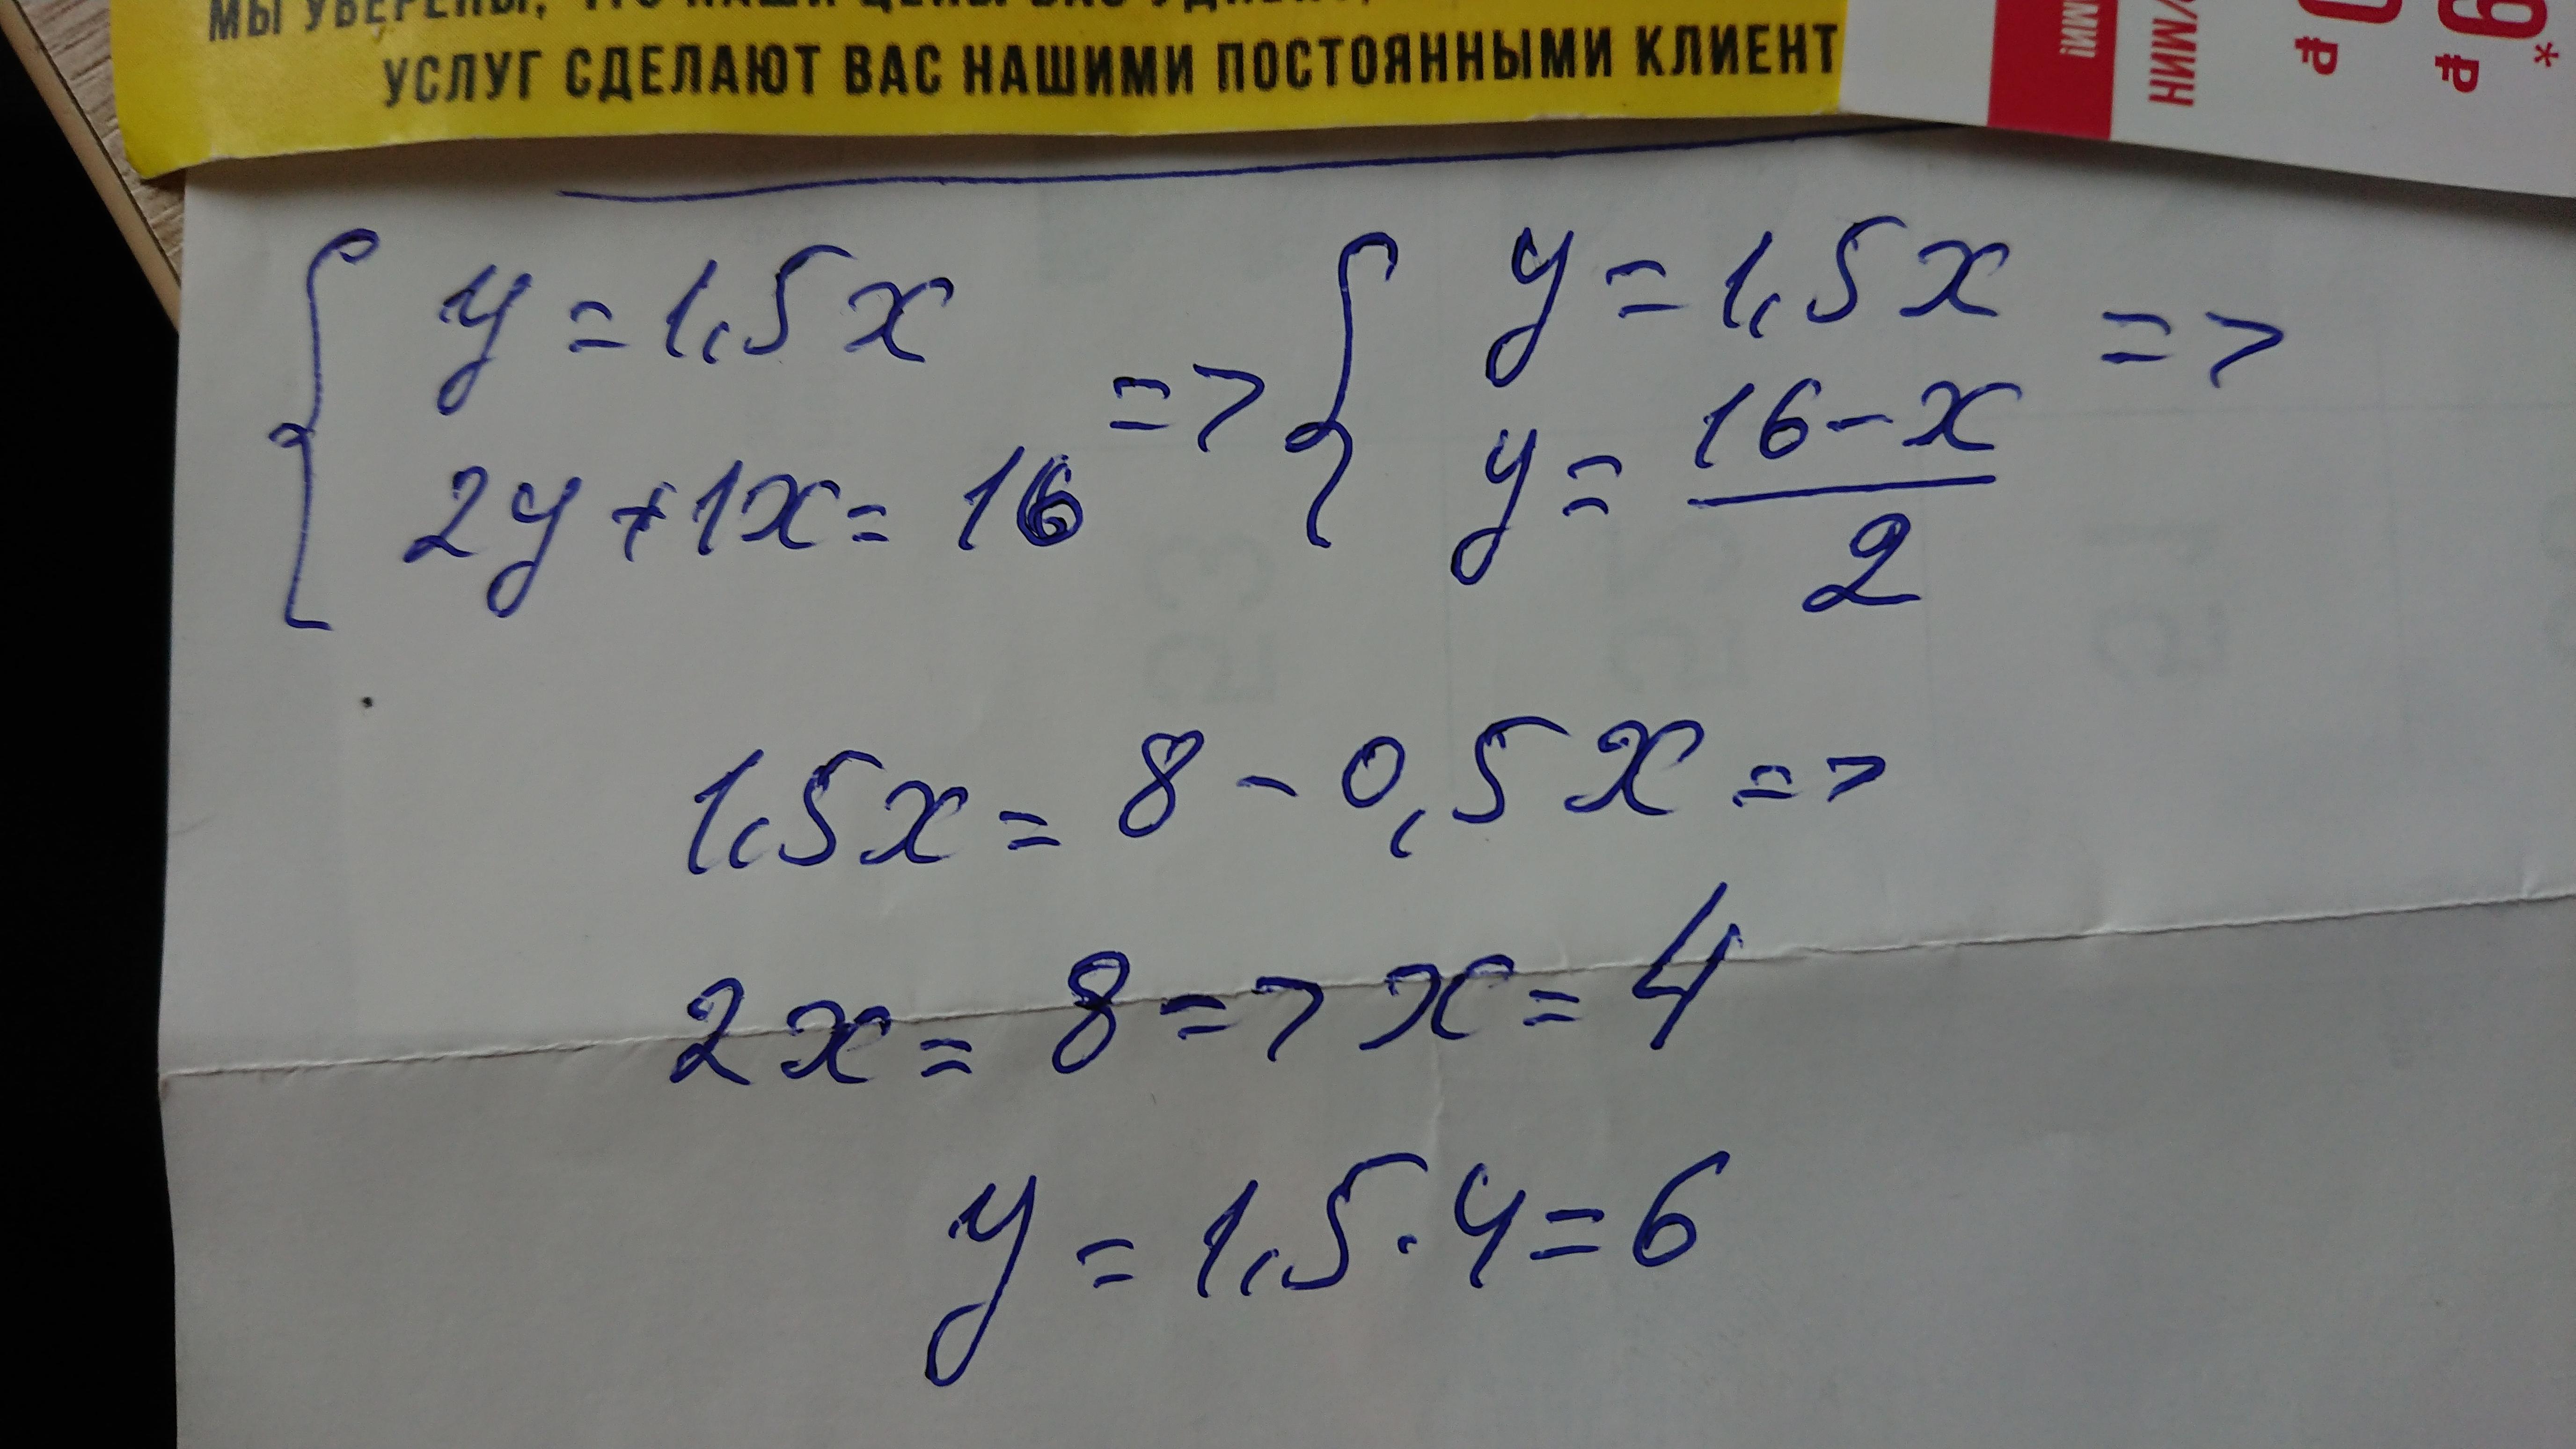 УСЛУГ СДЕЛАЮТ ВАС НАШИМИ ПОСТОЯННЫМИ КЛИЕНТ
МИН
₽
₽
*
y = 1,5x => y = 1,5x =>
2y + 1x = 16 y = (16 - x) / 2
1,5x = 8 - 0,5x =>
2x = 8 => x = 4
y = 1,5 · 4 = 6